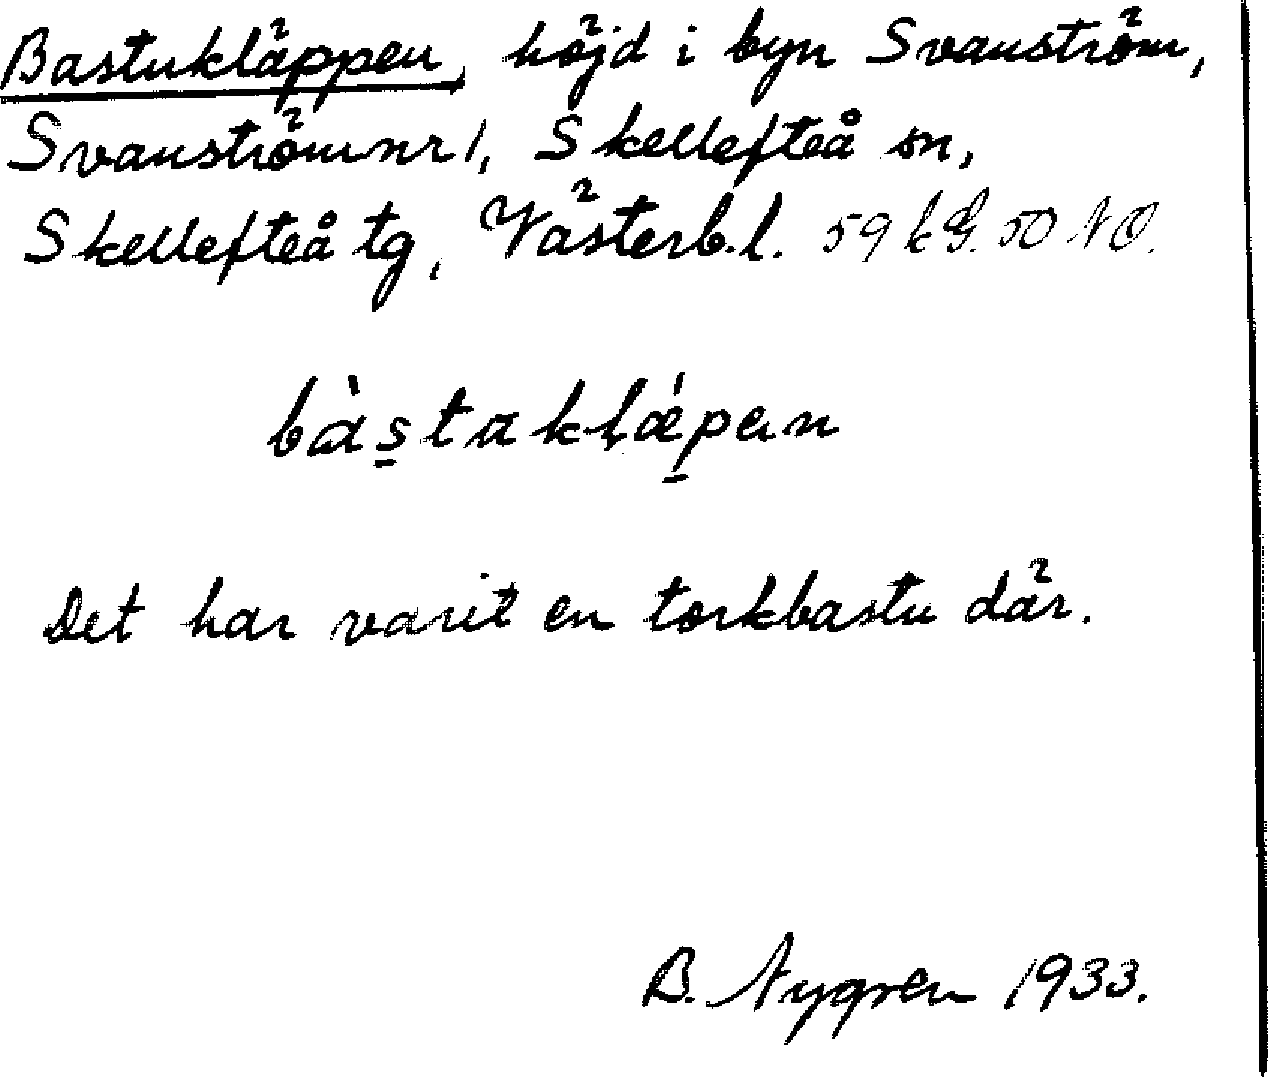 Bastukläppen, höjd i byn Svanström,
Svanström nr 1, Skellefteå sn,
Skellefteå tg, Västerb. l. 59 k G. 50 NO.
bàs̠taklǽp̠ən
Det har varit en torkbastu där.
B. Nygren 1933.